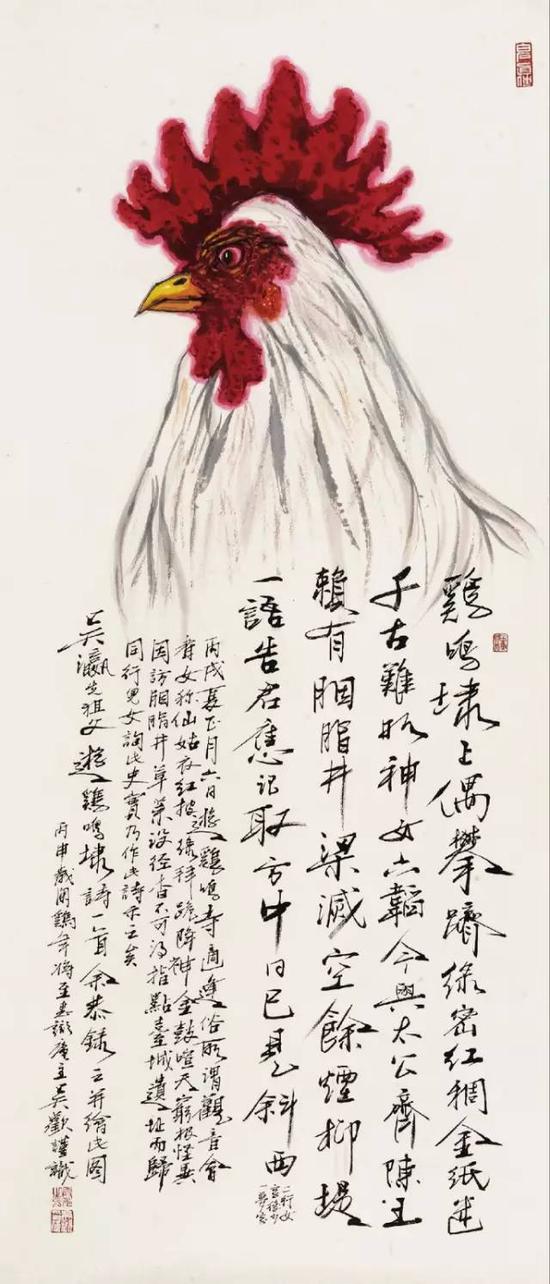 鷄鳴埭上偶攀躋綠密紅稠金紙迷
千古難 神女 韜今與太公齊陳王
賴有胭脂井梁滅空餘煙柳堤
一語告君應記取方中日已見斜西
丙戌夏正月六日遊鷄鳴寺適逢俗所謂觀音會
有女稱仙姑衣紅披綠拜跪降神金鼓喧天窮極怪異
因訪胭脂井草萊沒徑杳不可得指點臺城遺址而歸
同行兒女詢此史實乃作此詩示之矣
吳瀛先祖父遊鷄鳴埭詩一首余恭錄之并繪此圖
丙申歲聞鷄年將至 主吳歡謹識